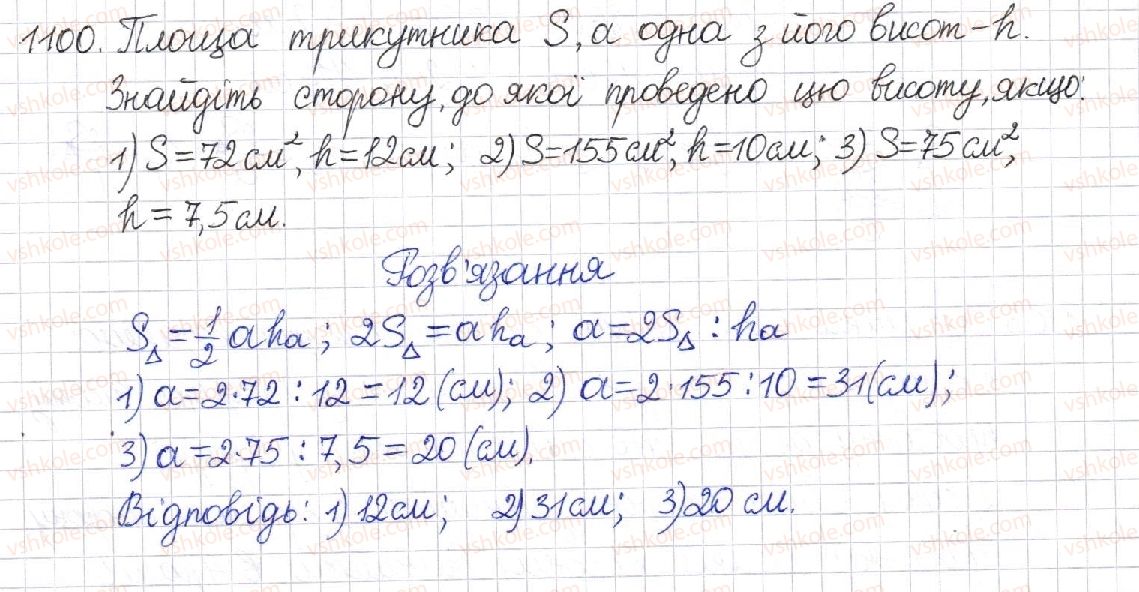 1100. Площа трикутника S, а одна з його висот – h.
Знайдіть сторону, до якої проведено цю висоту, якщо:
1) S = 72 см², h = 12 см; 2) S = 155 см², h = 10 см; 3) S = 75 см²,
h = 7,5 см.
Розв'язання
S△ = 1/2 a hₐ; 2S△ = a hₐ; a = 2S△ : hₐ
1) a = 2·72 : 12 = 12 (см); 2) a = 2·155 : 10 = 31 (см);
3) a = 2·75 : 7,5 = 20 (см).
Відповідь: 1) 12 см; 2) 31 см; 3) 20 см.
vshkole.com